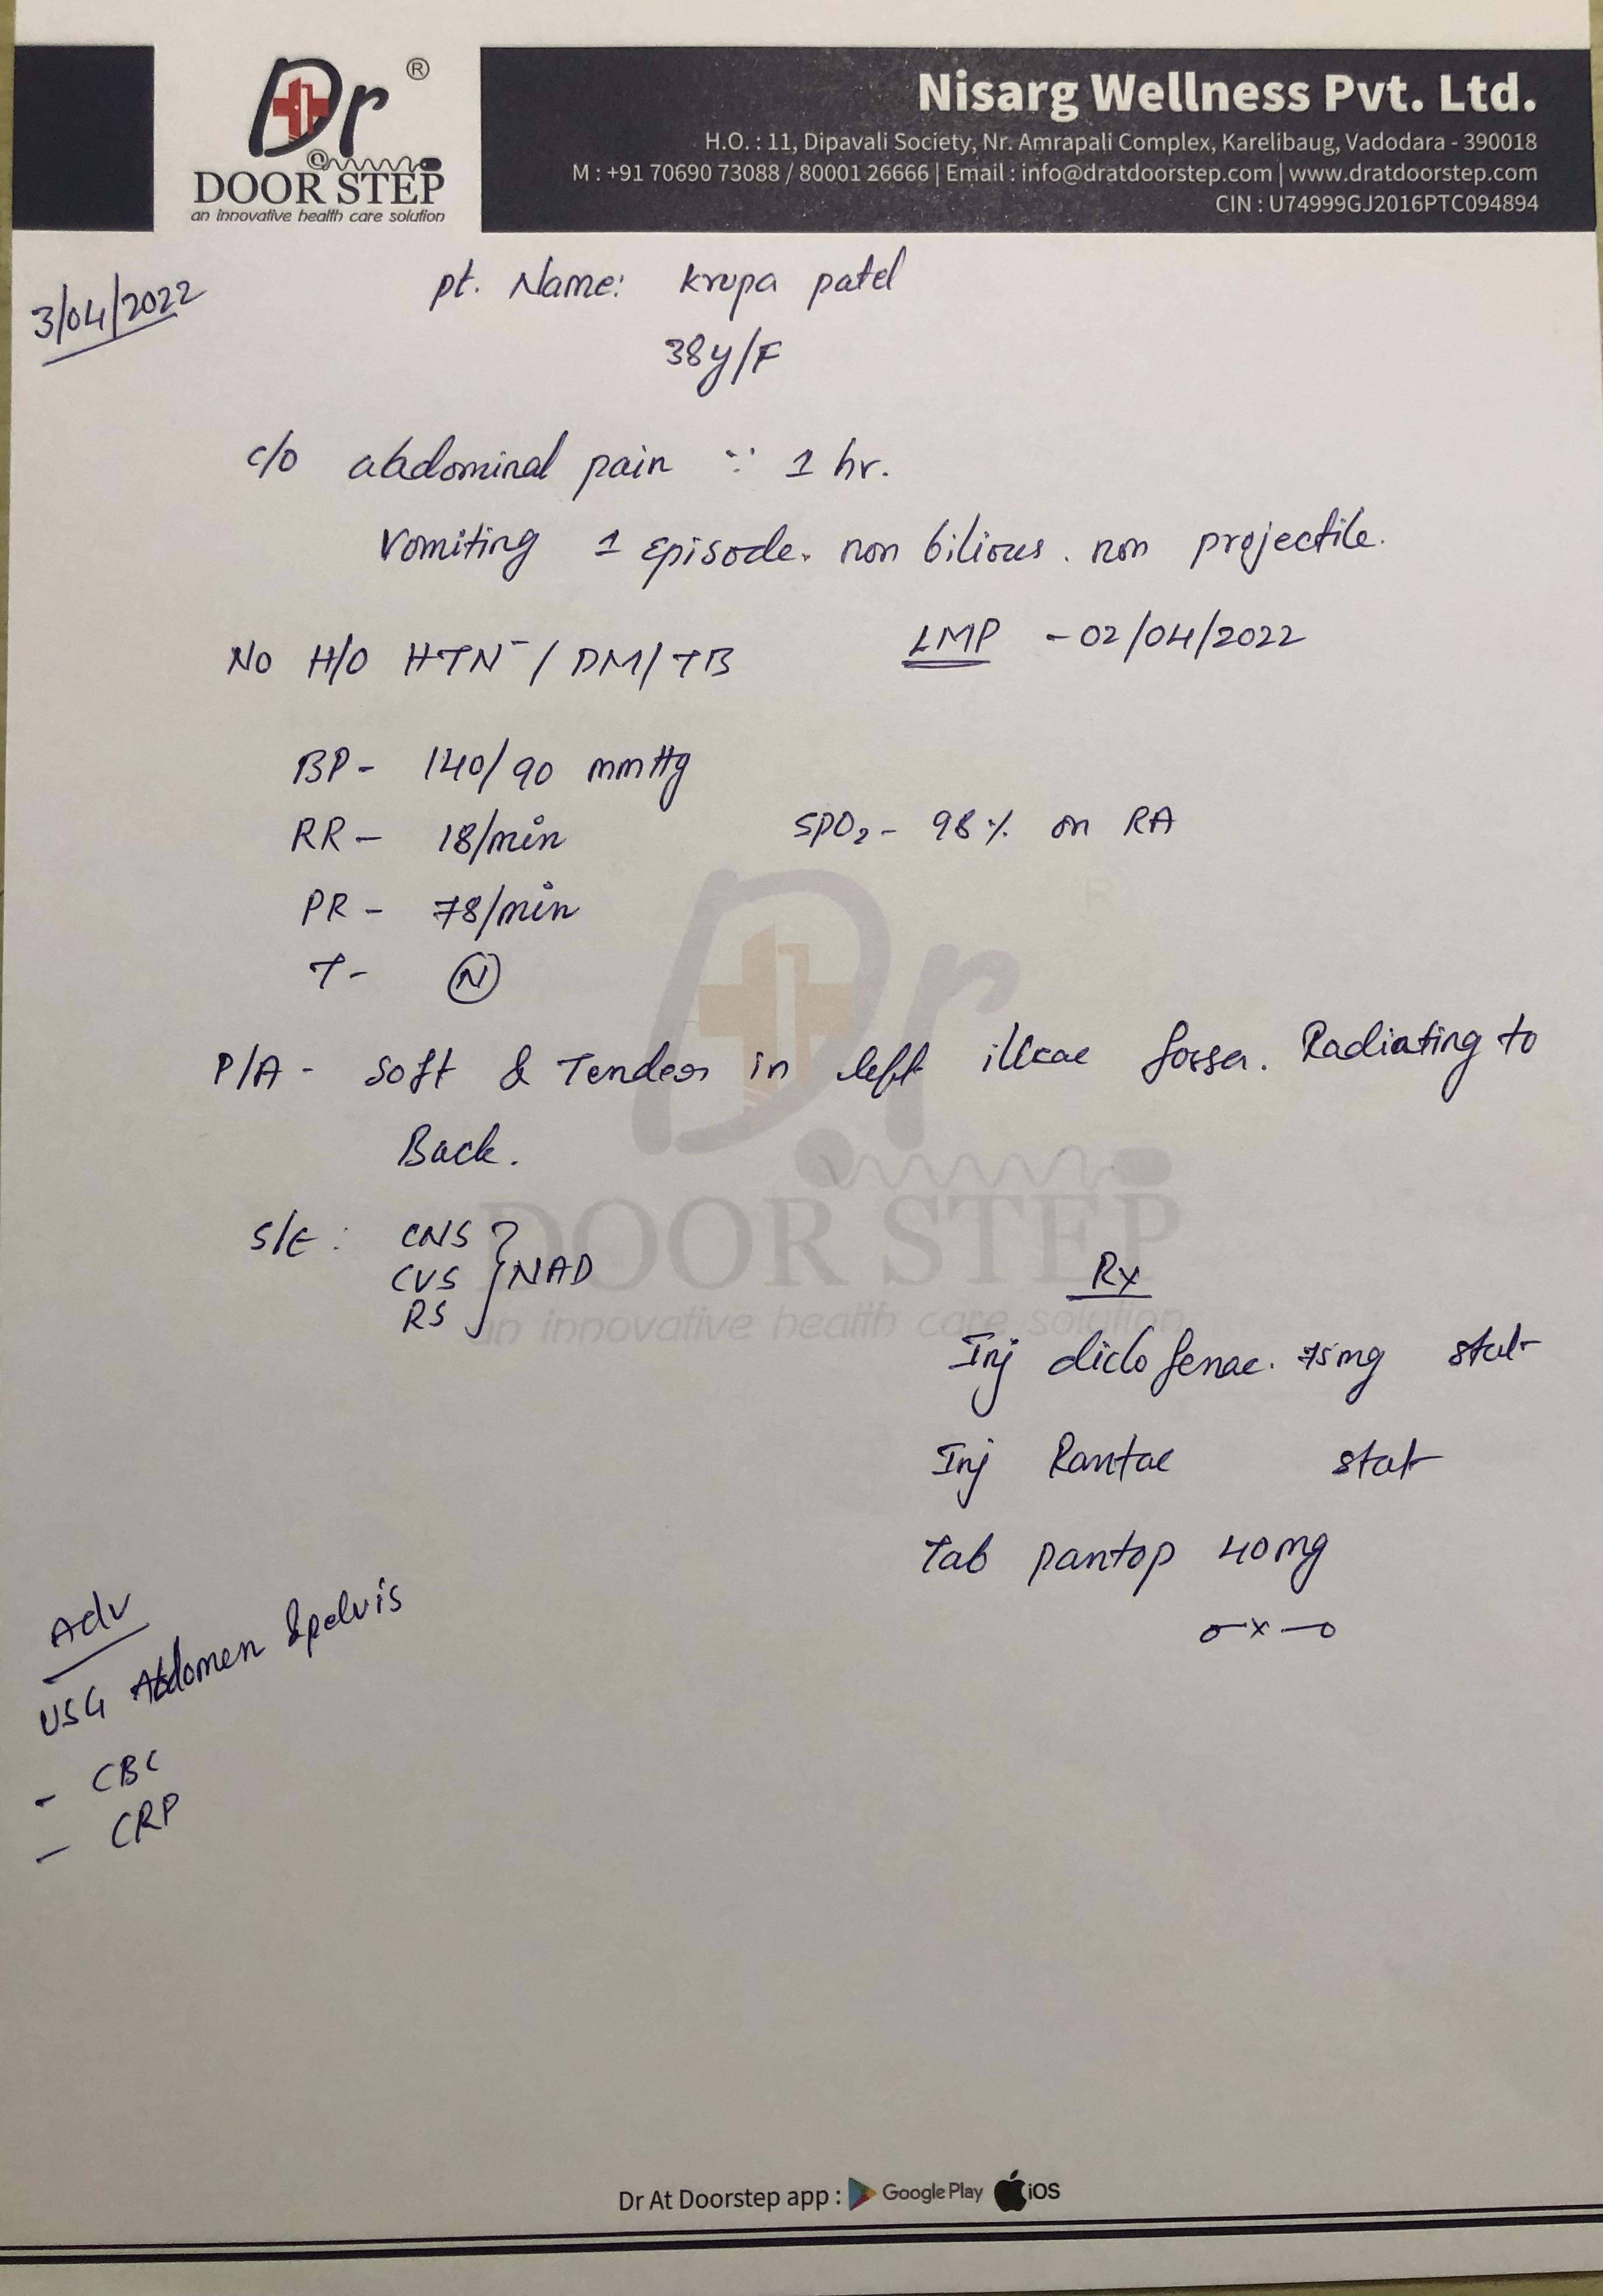 Dr ®
@
DOOR STEP
an innovative health care solution
Nisarg Wellness Pvt. Ltd.
H.O. : 11, Dipavali Society, Nr. Amrapali Complex, Karelibaug, Vadodara - 390018
M : +91 70690 73088 / 80001 26666 | Email : info@dratdoorstep.com | www.dratdoorstep.com
CIN : U74999GJ2016PTC094894
3/04/2022
pt. Name: Krupa patel
38y/F
c/o abdominal pain ∵ 1 hr.
Vomiting 1 Episode. non bilious. non projectile.
No H/O HTN / DM / TB
LMP - 02/04/2022
BP - 140/90 mmHg
RR - 18/min
SPO₂ - 98% on RA
PR - 78/min
T - N
P/A - Soft & Tender in left illeac fossa. Radiating to
Back.
S/E : CNS
CVS } NAD
RS
Dr
DOOR STEP
an innovative health care solution
Rx
Inj diclofenac. 75mg stat
Inj Rantac stat
Tab pantop 40mg
o-x-o
Adv
USG Abdomen & pelvis
- CBC
- CRP
Dr At Doorstep app : Google Play iOS